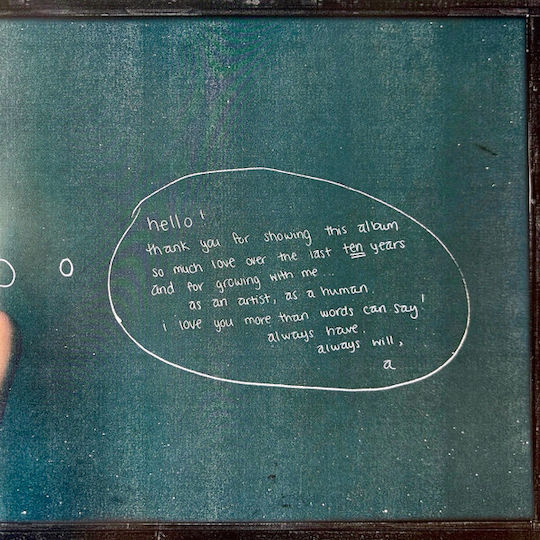 hello!
thank you for showing this album
so much love over the last ten years
and for growing with me...
as an artist, as a human.
i love you more than words can say!
always have.
always will,
a